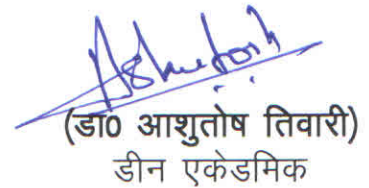 Ashutosh
(डा0 आशुतोष तिवारी)
डीन एकेडमिक